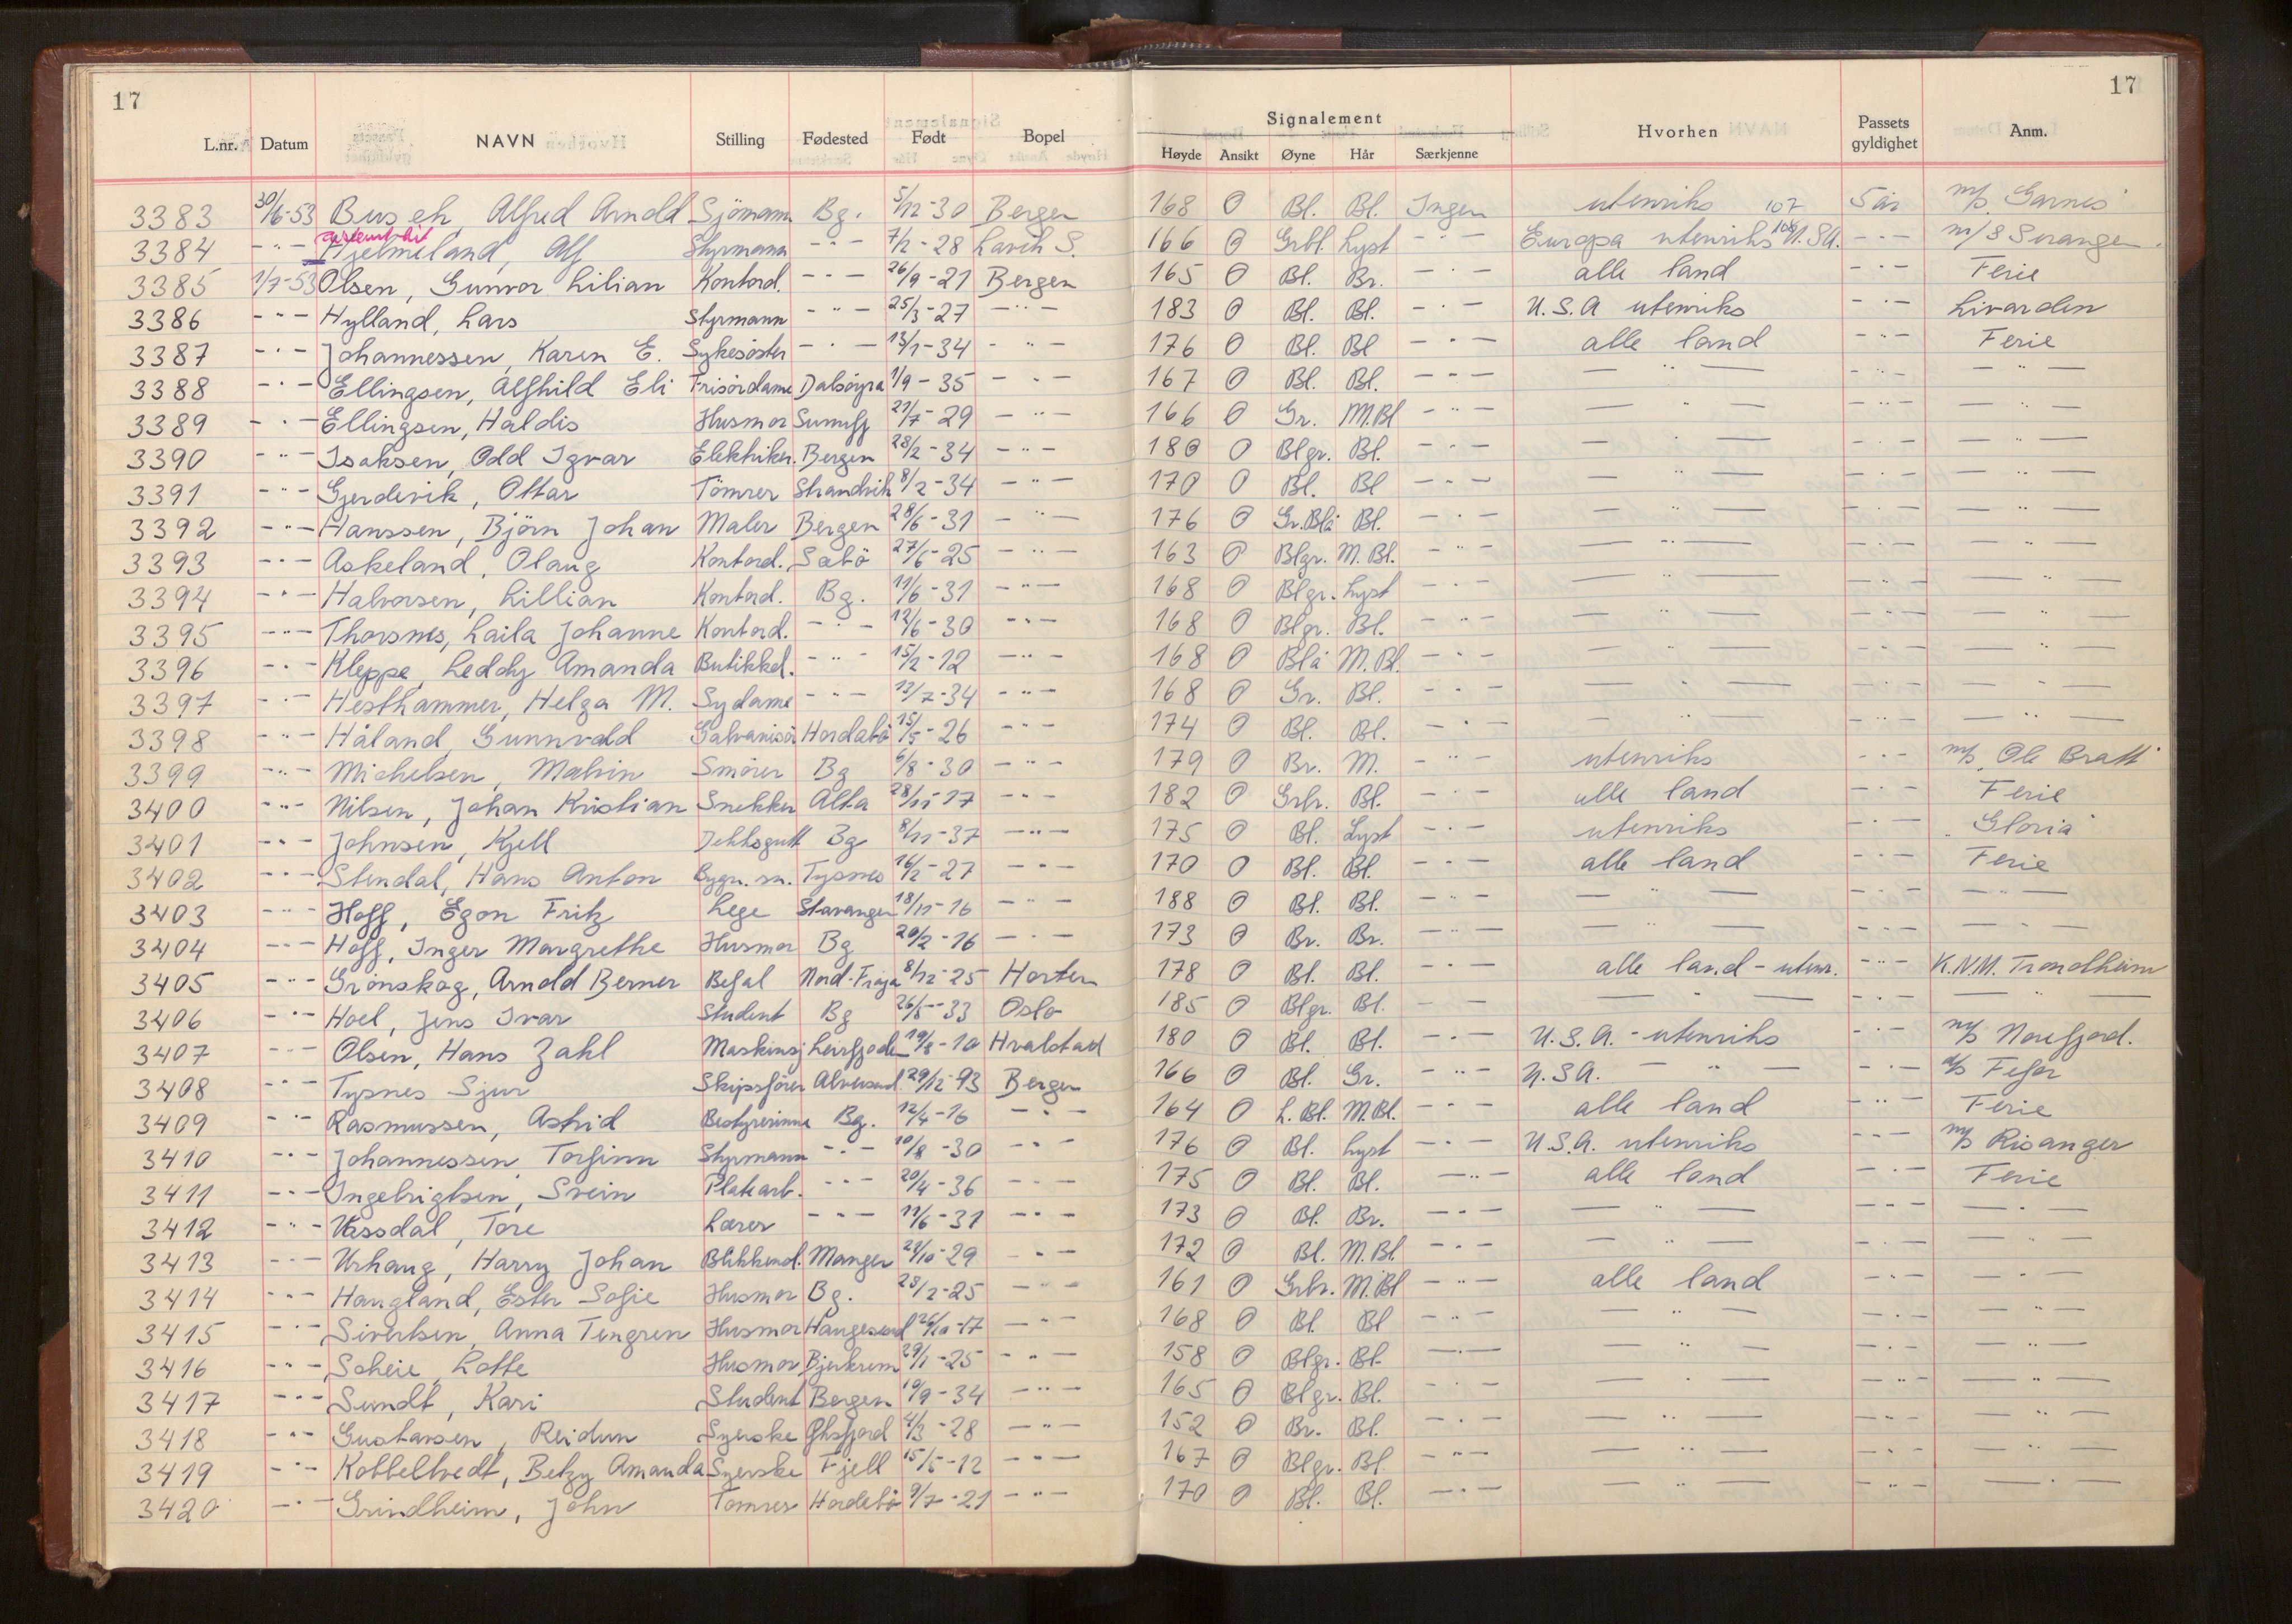 17
17
Signalement
L.nr. Datum NAVN Stilling Fødested Født Bopel Høyde Ansikt Øyne Hår Særkjenne Hvorhen Passets gyldighet Anm.
3383 30/6-53 Buseh, Alfred Arnold Sjömann Bg. 5/12-30 Bergen 168 O Bl. Bl. Ingen utenriks 107 5 år m/s "Garnes"
3384 -"- Hjelmeland, Alf Styrmann -"- 7/2-28 Lavik S. 166 O Grbl. Lyst -"- Europa utenriks 108 U.S.A. -"- m/s Seranger
3385 1/7-53 Olsen, Gunvor Lilian Kontord. -"- 26/9-21 Bergen 165 O Bl. Br. -"- alle land -"- Ferie
3386 -"- Hylland, Lars Styrmann -"- 25/3-27 -"- 183 O Bl. Bl. -"- U.S.A utenriks -"- Livarden
3387 -"- Johannessen, Karen E. Sykesöster -"- 13/1-34 -"- 176 O Bl. Bl -"- alle land -"- Ferie
3388 -"- Ellingsen, Alfhild Eli Frisördame Dalsöyra 1/9-35 -"- 167 O Bl. Bl. -"- -"- -"- -"-
3389 -"- Ellingsen, Haldis Husmor 21/7-29 -"- 166 O Gr. M.Bl -"- -"- -"- -"-
3390 -"- Isaksen, Odd Igvar Elektriker. Bergen 28/2-34 -"- 180 O Blgr. Bl. -"- -"- -"- -"-
3391 -"- Gjerdevik, Ottar Tömrer Strandvik 8/2-34 -"- 170 O Bl. Bl -"- -"- -"- -"-
3392 -"- Hanssen, Björn Johan Maler Bergen 28/6-31 -"- 176 O Gr.Blå Bl. -"- -"- -"- -"-
3393 -"- Askeland, Olaug Kontord. Sæbö 27/6-25 -"- 163 O Blgr. M.Bl. -"- -"- -"- -"-
3394 -"- Halvorsen, Lillian Kontord. Bg. 11/6-31 -"- 168 O Blgr. Lyst -"- -"- -"- -"-
3395 -"- Thorsnes, Laila Johanne Kontord. -"- 12/6-30 -"- 168 O Blgr. Bl. -"- -"- -"- -"-
3396 -"- Kleppe, Leddy Amanda Butikkd. -"- 15/2-12 -"- 168 O Blå M.Bl. -"- -"- -"- -"-
3397 -"- Hesthammer, Helga M. Sydame -"- 13/7-34 -"- 168 O Gr. Bl. -"- -"- -"- -"-
3398 -"- Håland, Gunnvald Galvanisör Hordabö 15/5-26 -"- 174 O Bl. Bl. -"- -"- -"- -"-
3399 -"- Michelsen, Malvin Smörer Bg 6/8-30 -"- 179 O Br. M. -"- utenriks -"- m/s "Ole Bratt"
3400 -"- Nilsen, Johan Kristian Snekker Alta 28/11-17 -"- 182 O Grbr. Bl. -"- alle land -"- Ferie
3401 -"- Johnsen, Kjell Dekksgutt Bg 8/11-37 -"- 175 O Bl. Lyst -"- utenriks -"- "Gloria"
3402 -"- Stendal, Hans Anton Bygn. sn. Tysnes 16/2-27 -"- 170 O Bl. Bl. -"- alle land -"- Ferie
3403 -"- Hoff, Egon Fritz Lege Stavanger 18/11-16 -"- 188 O Bl. Bl. -"- -"- -"- -"-
3404 -"- Hoff, Inger Margrethe Husmor Bg 20/2-16 -"- 173 O Br. Br. -"- -"- -"- -"-
3405 -"- Grönskag, Arnold Berner Befal Nord-Fröya 8/12-25 Horten 178 O Bl. Bl. -"- alle land - utenr. -"- K.N.M. Trondheim
3406 -"- Hoel, Jens Ivar Student Bg 26/5-33 Oslo 185 O Blgr. Bl. -"- -"- -"- -"-
3407 -"- Olsen, Hans Zahl Maskinsj Leirfjorden 19/8-10 Hvalstad 180 O Bl. Bl. -"- U.S.A. - utenriks -"- m/s Norefjord.
3408 -"- Tysnes Sjur Skipsförer Alversund 29/12-93 Bergen 166 O Bl. Gr. -"- U.S.A. -"- -"- d/s Fefor
3409 -"- Rasmussen, Astrid Bestyrerinne Bg. 12/4-16 -"- 164 O L.Bl. M.Bl. -"- alle land -"- Ferie
3410 -"- Johannessen, Torfinn Styrmann -"- 10/8-30 -"- 176 O Bl. Lyst -"- U.S.A. utenriks -"- m/s Risanger
3411 -"- Ingebrigtsen, Svein Platearb. -"- 20/4-36 -"- 175 O Bl. Bl. -"- alle land -"- Ferie
3412 -"- Vassdal, Tore Lærer -"- 11/6-31 -"- 173 O Bl. Br. -"- -"- -"- -"-
3413 -"- Urhaug, Harry Johan Blikkensl. Manger 29/10-29 -"- 172 O Bl. M.Bl -"- -"- -"- -"-
3414 -"- Haugland, Ester Sofie Husmor Bg. 28/2-25 -"- 161 O Grbr. M.Bl -"- alle land -"- -"-
3415 -"- Sivertsen, Anna Tengren Husmor Haugesund 26/10-17 -"- 168 O Bl. Bl -"- -"- -"- -"-
3416 -"- Scheie, Lotte Husmor Bjerkrem 29/1-25 -"- 158 O Blgr. Bl. -"- -"- -"- -"-
3417 -"- Sundt, Kari Student Bergen 10/9-34 -"- 165 O Blgr. Bl. -"- -"- -"- -"-
3418 -"- Gustavsen, Reidun Syerske Öksfjord 4/3-28 -"- 152 O Br. Bl. -"- -"- -"- -"-
3419 -"- Kobbeltvedt, Betzy Amanda Syerske Fjell 15/5-12 -"- 167 O Blgr. Bl -"- -"- -"- -"-
3420 -"- Grindheim, John Tömrer Hordebö 9/7-21 -"- 170 O Bl. Bl. -"- -"- -"- -"-